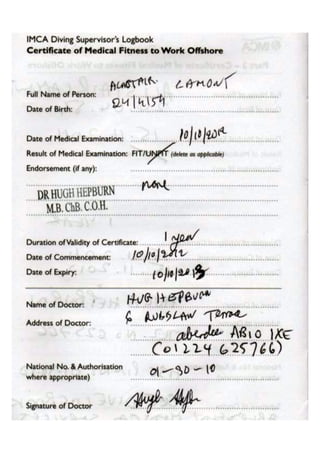 IMCA Diving Supervisor's Logbook
Certificate of Medical Fitness to Work Offshore
Full Name of Person: ALASTAIR LAMONT
Date of Birth: 24/4/54
Date of Medical Examination: 10/10/2012
Result of Medical Examination: FIT/UNFIT (delete as applicable)
Endorsement (if any): none
DR HUGH HEPBURN
M.B. ChB. C.O.H.
Duration of Validity of Certificate: 1 year
Date of Commencement: 10/10/2012
Date of Expiry: 10/10/2013
Name of Doctor: HUGH HEPBURN
Address of Doctor: 6 RUBISLAW Terrace
aberdeen AB10 1XE
(01224 625766)
National No. & Authorisation
where appropriate) 01-30-10
Signature of Doctor Hugh